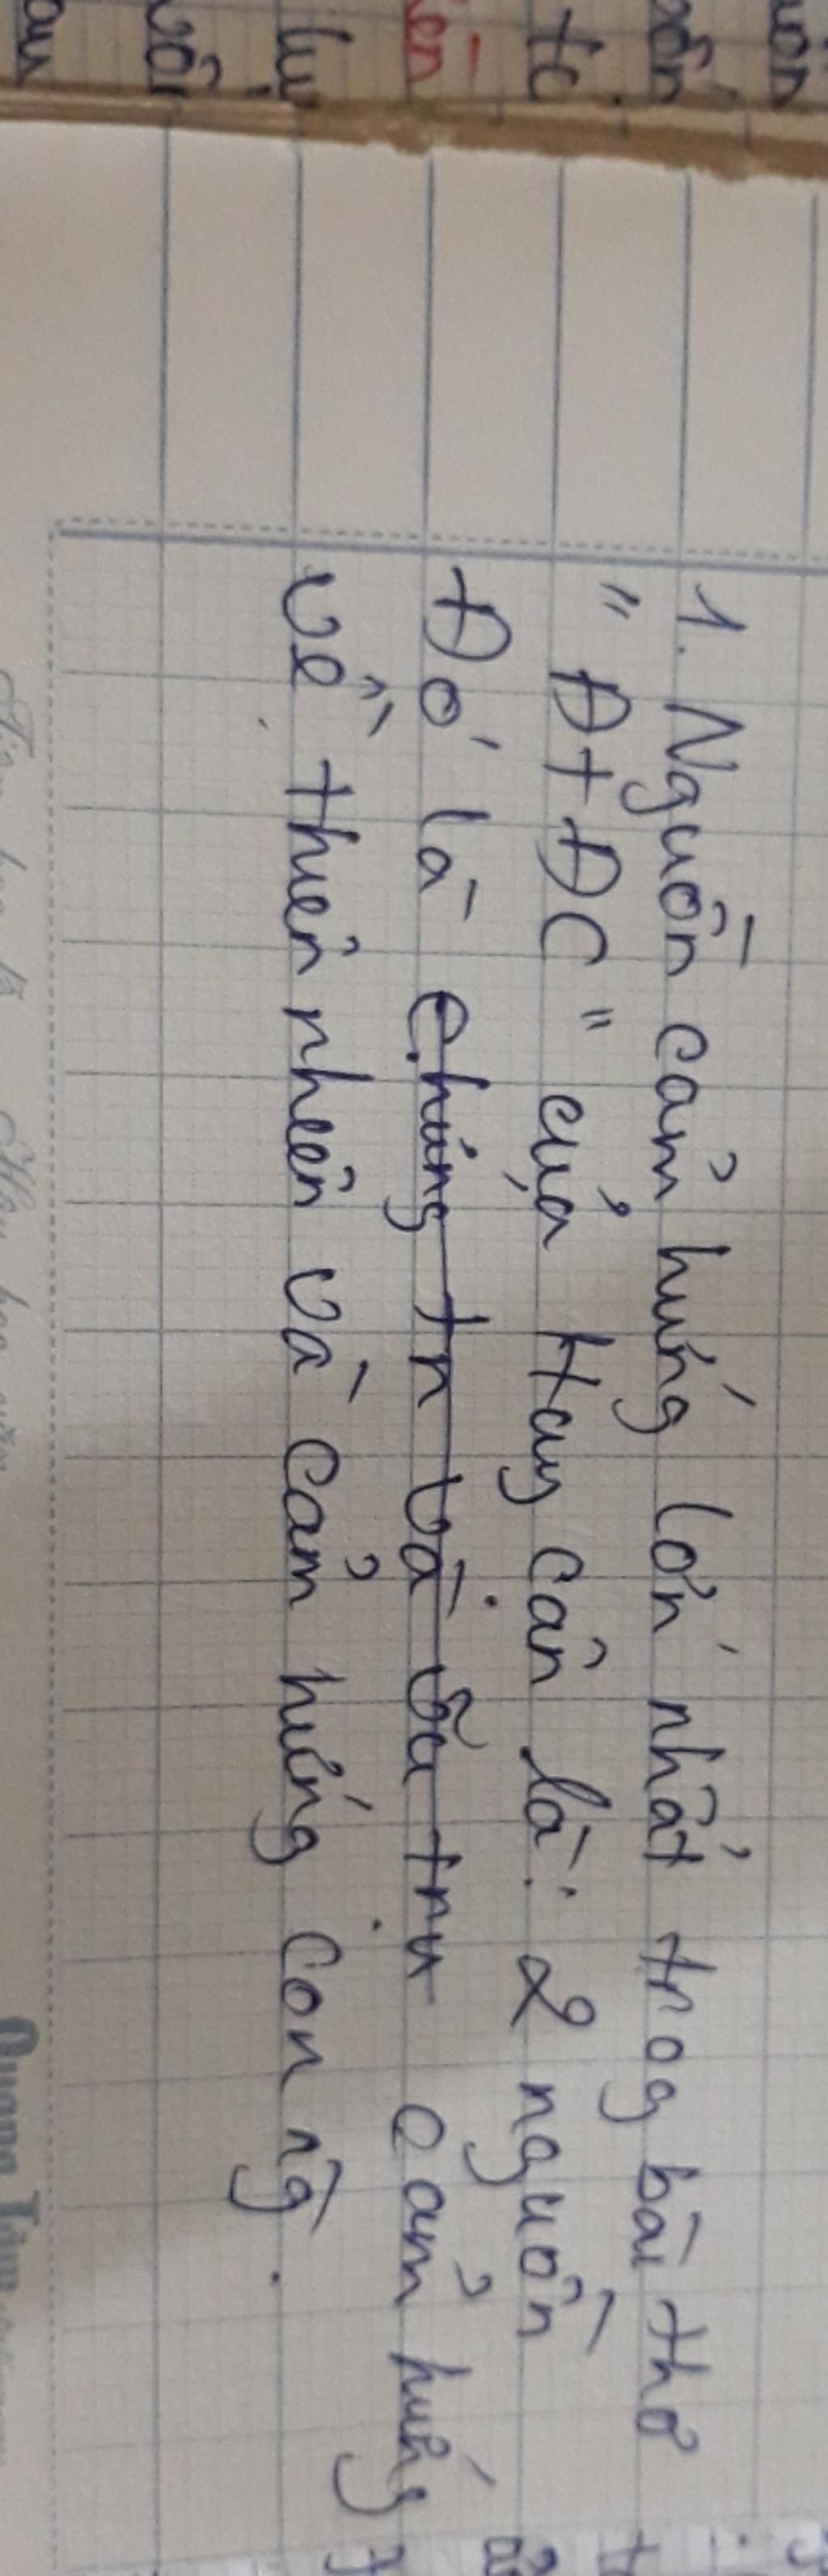 1. Nguồn cảm hứng lớn nhất trog bài thơ
" ĐTĐC" của Huy Cận là: 2 nguồn
Đó là chúng tn và vũ trụ cảm hứng
về thiên nhiên và cảm hứng con ng̀.